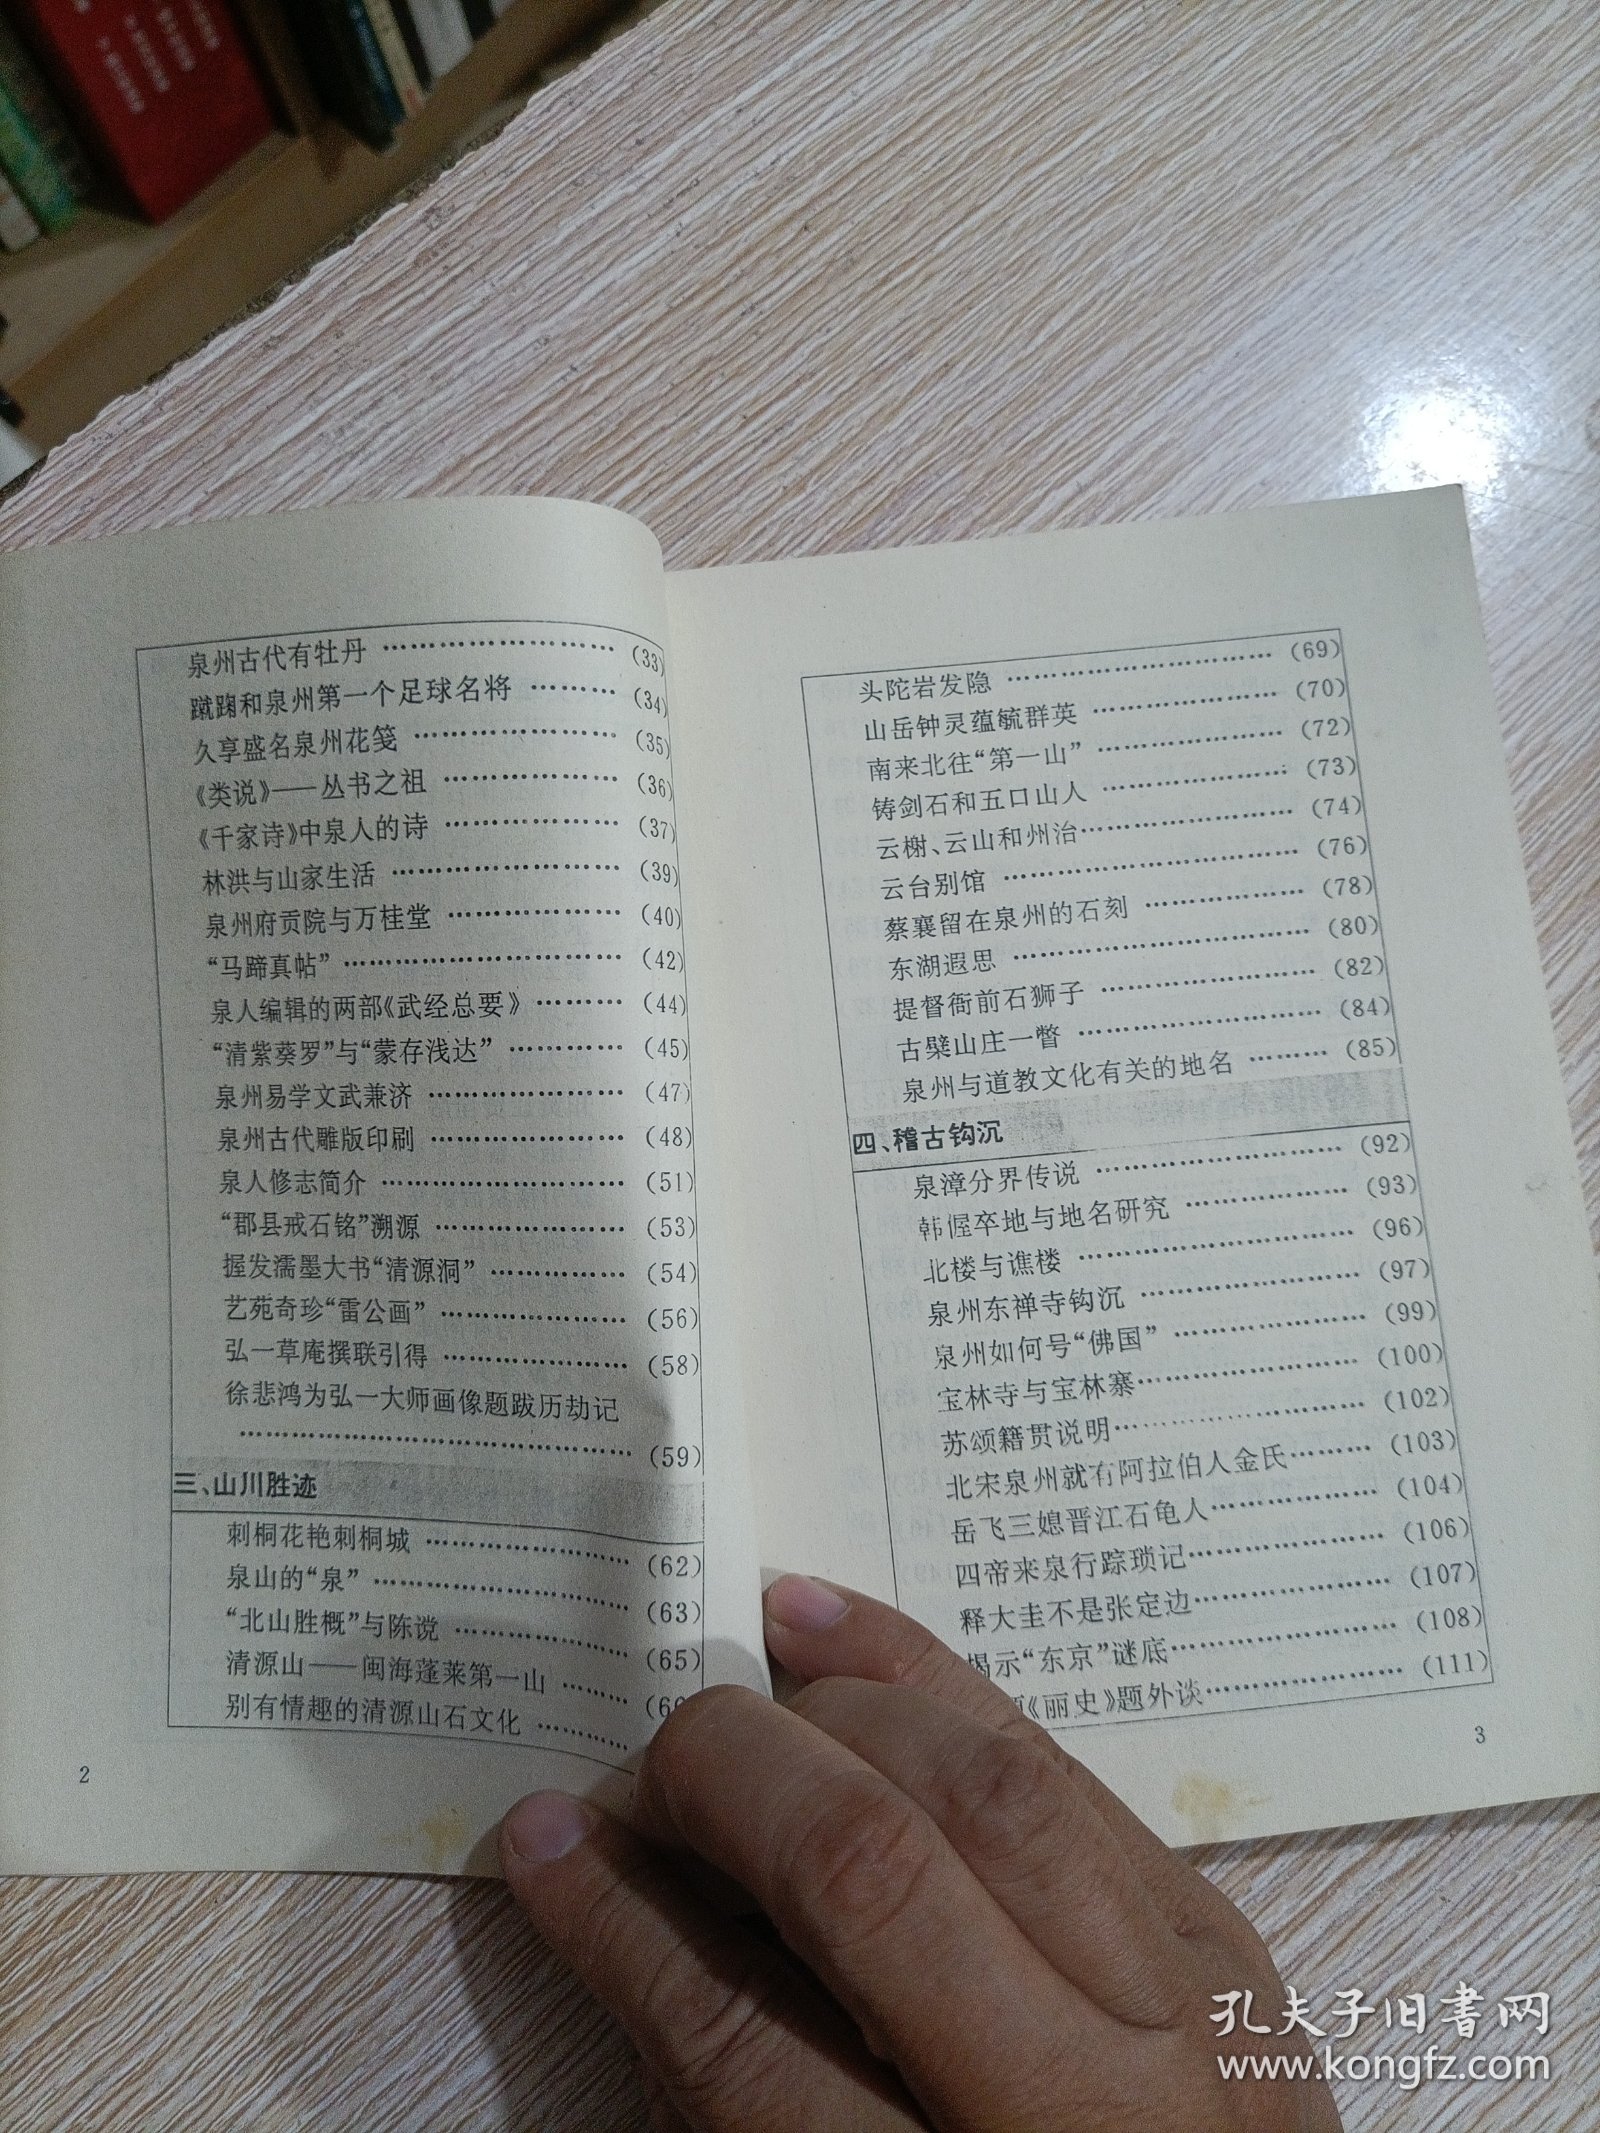 泉州古代有牡丹 ……………………… (33)
蹴踘和泉州第一个足球名将 ……… (34)
久享盛名泉州花笺 …………………… (35)
《类说》——丛书之祖 ………………… (36)
《千家诗》中泉人的诗 ………………… (37)
林洪与山家生活 ……………………… (39)
泉州府贡院与万桂堂 ………………… (40)
“马蹄真帖” …………………………… (42)
泉人编辑的两部《武经总要》 ……… (44)
“清紫葵罗”与“蒙存浅达” ………… (45)
泉州易学文武兼济 …………………… (47)
泉州古代雕版印刷 …………………… (48)
泉人修志简介 ………………………… (51)
“郡县戒石铭”溯源 ………………… (53)
握发濡墨大书“清源洞” …………… (54)
艺苑奇珍“雷公画” ………………… (56)
弘一草庵撰联引得 …………………… (58)
徐悲鸿为弘一大师画像题跋历劫记
……………………………………… (59)
三、山川胜迹
刺桐花艳刺桐城 ……………………… (62)
泉山的“泉” ………………………… (63)
“北山胜概”与陈谠 ………………… (65)
清源山——闽海蓬莱第一山 ………
别有情趣的清源山石文化 …………
2
头陀岩发隐 ………………………… (69)
山岳钟灵蕴毓群英 ………………… (70)
南来北往“第一山” ………………… (72)
铸剑石和五口山人 ………………… (73)
云榭、云山和州治…………………… (74)
云台别馆 …………………………… (76)
蔡襄留在泉州的石刻 ……………… (78)
东湖遐思 …………………………… (80)
提督衙前石狮子 …………………… (82)
古檗山庄一瞥 ……………………… (84)
泉州与道教文化有关的地名 ……… (85)
四、稽古钩沉
泉漳分界传说 ……………………… (92)
韩偓卒地与地名研究 ……………… (93)
北楼与谯楼 ………………………… (96)
泉州东禅寺钩沉 …………………… (97)
泉州如何号“佛国” ………………… (99)
宝林寺与宝林寨…………………… (100)
苏颂籍贯说明……………………… (102)
北宋泉州就有阿拉伯人金氏……… (103)
岳飞三媳晋江石龟人……………… (104)
四帝来泉行踪琐记………………… (106)
释大圭不是张定边………………… (107)
揭示“东京”谜底…………………… (108)
《丽史》题外谈…………………… (111)
3
孔夫子旧书网
www.kongfz.com